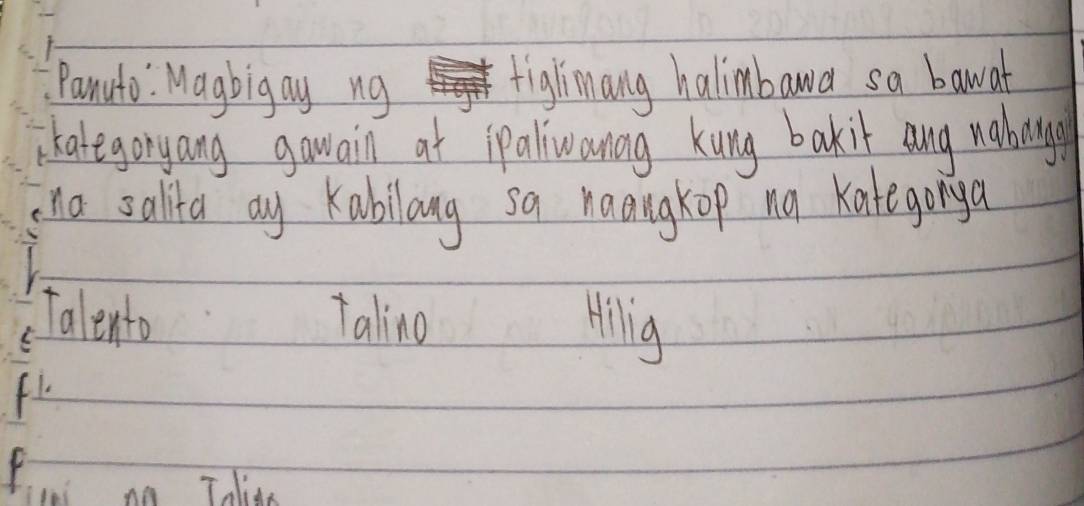 Panuto: Magbigay ng tiglimang halimbawa sa bawat
kategoryang gawain at ipaliwanag kung bakit ang nabanggit
na salita ay kabilang sa naangkop na kategorya
Talento Talino Hilig
1.
ng Talino